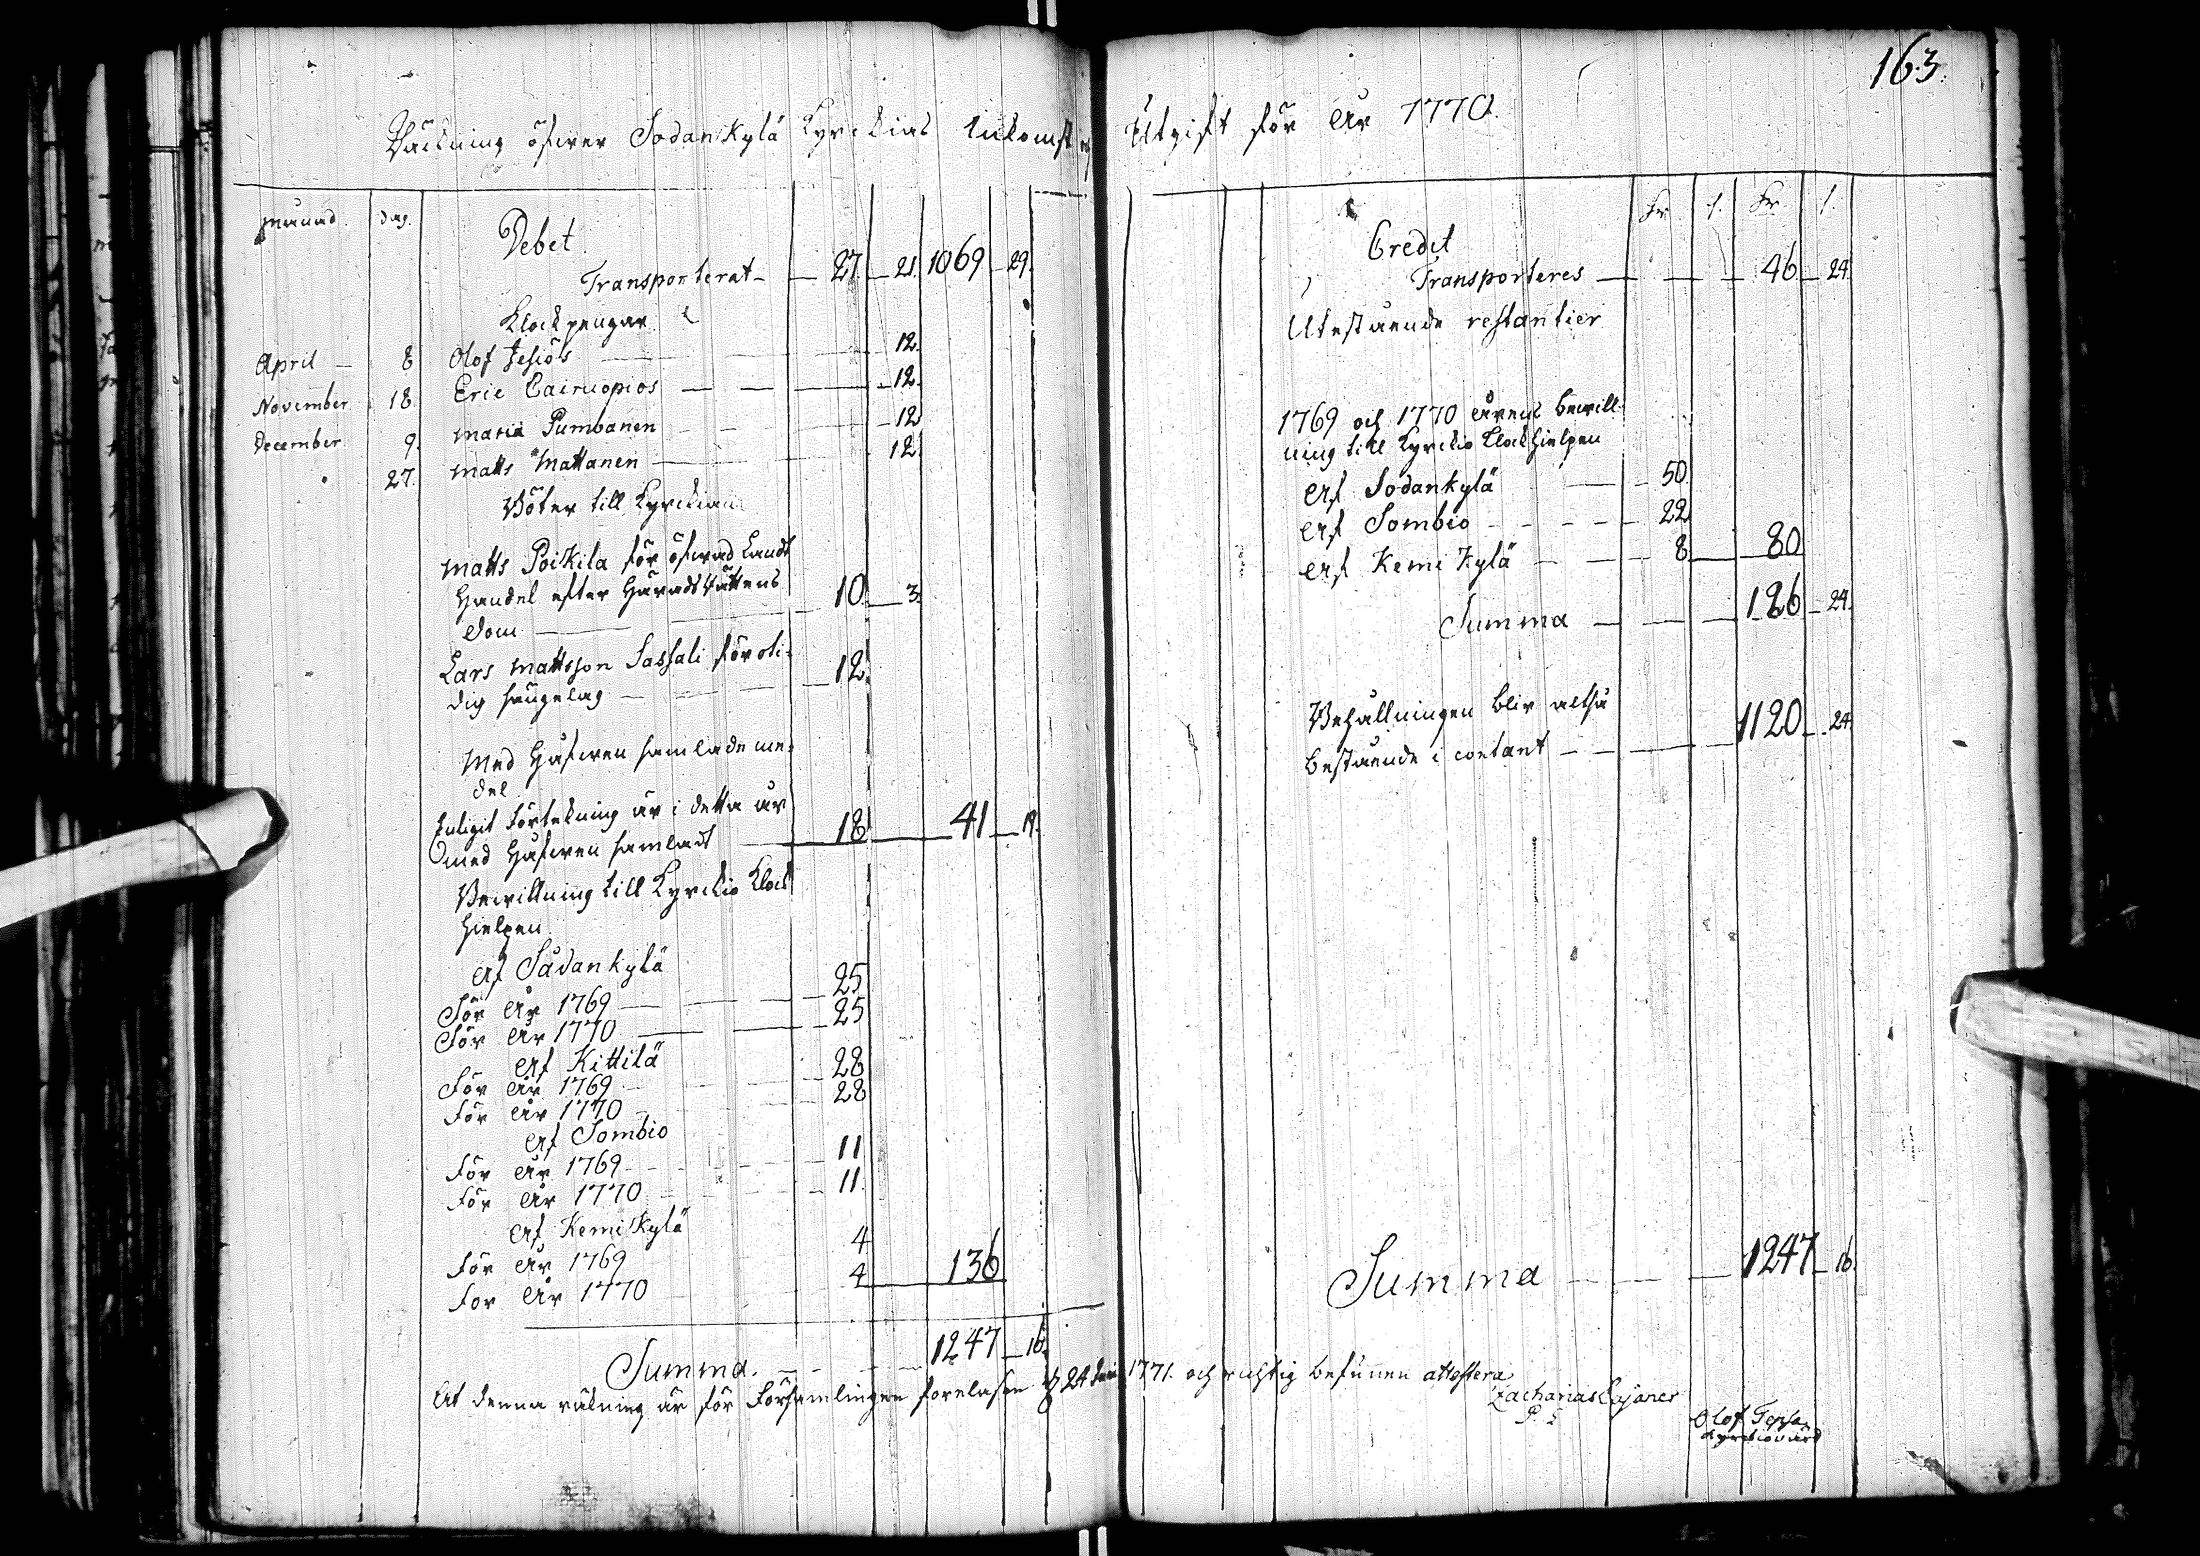 163.
Räckning öfwer Sodankylä Kyrckias Inkomst och Utgift för år 1770.
Månad. Dag. Debet
Transporterat 27 21. 1069 29.
Klockpengar
April 8 Olof 12.
November 18 Eric Cairuopios 12.
December 9. Maria Pumbanen 12
27. Matts Mattanen 12.
Böter till Kyrckian
Matts Poikila för Landt
Handel efter HäradsRättens
Dom 10 3.
Lars Mattsson Sassali för oti-
dig sängelag 12.
Med Håfwen samlade me-
del.
Enligit Förtekning är i detta år
med Håfwen samladt 18 41 19.
Bewillning till Kyrckio Klock
hielpen
Af Sådankylä
För År 1769 25
För År 1770 25
Af Kittilä
För År 1769 28
För År 1770 28
Af Sombio
För År 1769 11
För År 1770 11.
Af KemiKylä
För År 1769 4
För År 1770 4 136
Summa. 1247 16.
Credit
Transporteres 46 24.
Utestående restantier
1769 och 1770 årens bewill-
ning till Kyrckio Klockhielpen
Af Sodankylä 50
Af Sombio 22
Af Kemi Kylä 8 80
Summa 126 24.
Behållningen blir altså
bestående i contant 1120 24.
Summa 1247 16.
At denna räkning är för Församlingen föreläsen d 24 1771. och richtig befunnen attestera
Zacharias Cajanus
Olof
Kyrckiowärd